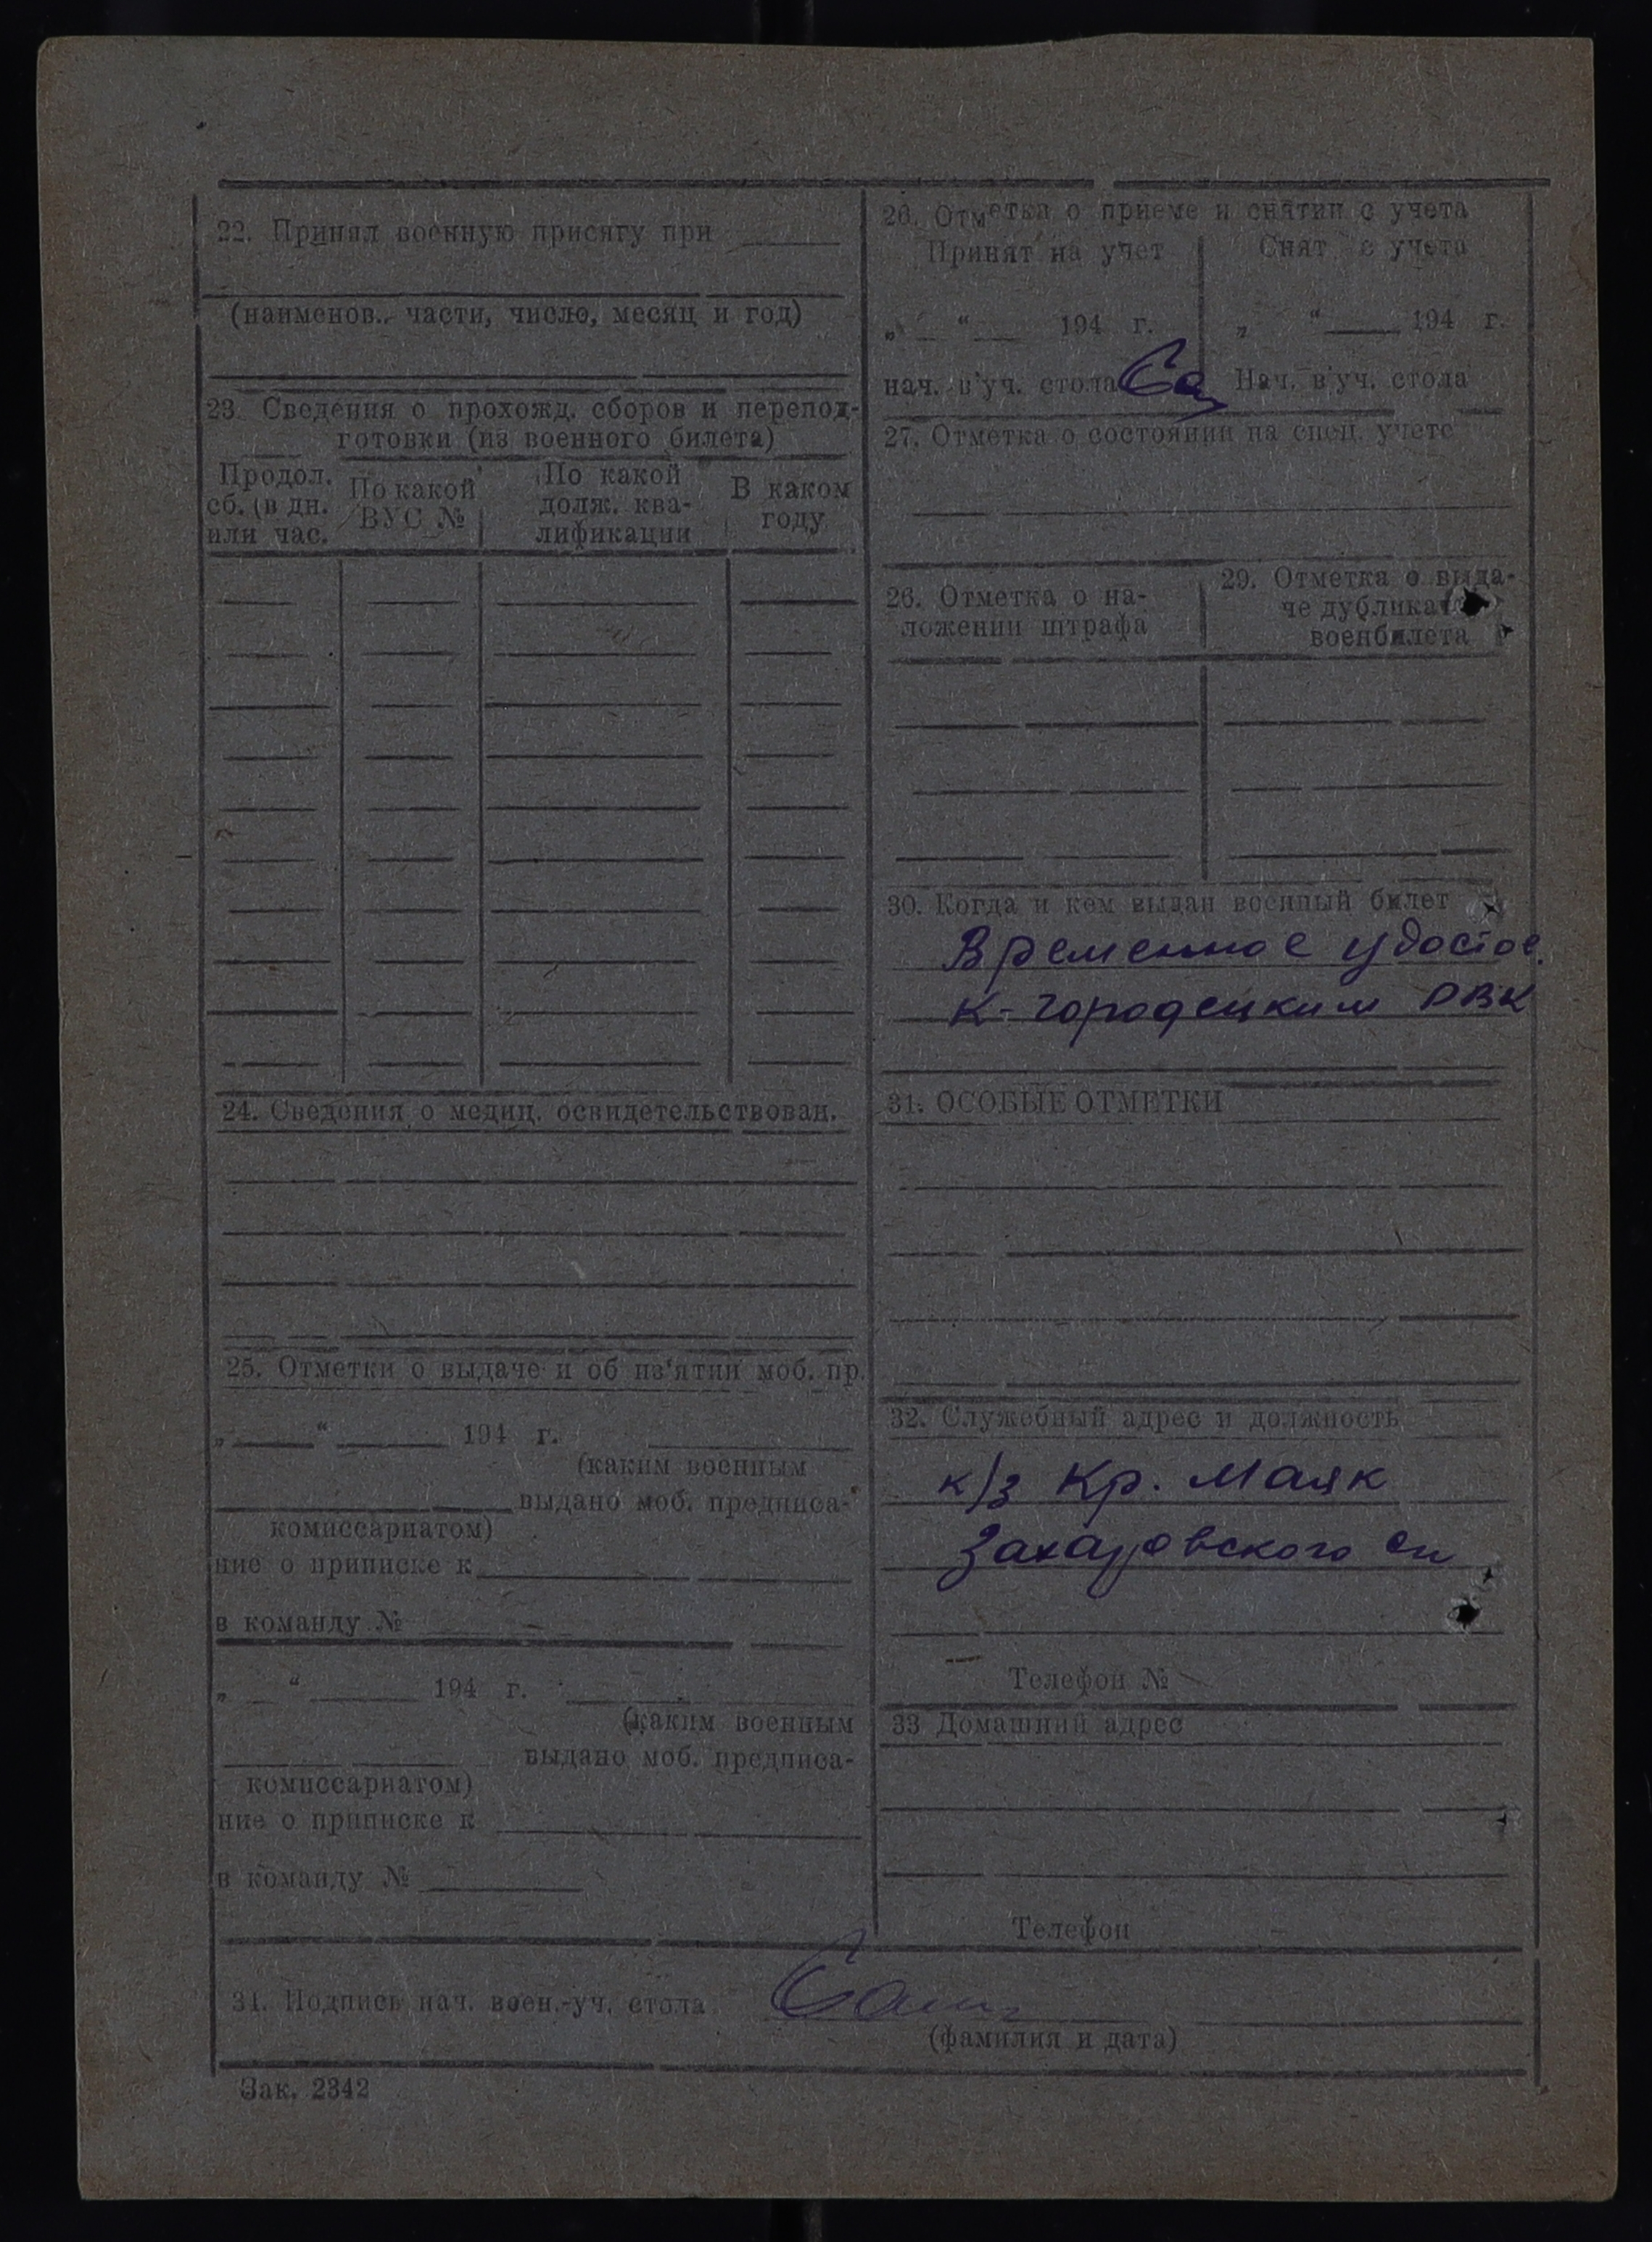 22. Принял военную присягу при
(наименов.. части, число, месяц и год)
23. Сведения о прохожд. сборов и перепод-
готовки (из военного билета)
Продол.
сб. (в дн.
или час.
По какой
ВУС №
По какой
долж. ква-
лификации
В каком
году
24. Сведения о медиц. освидетельствован.
25. Отметки о выдаче и об из‘ятии моб. пр.
„ “ 194 г.
(каким военным
выдано моб. предписа-
комиссариатом)
ние о приписке к
в команду №
„ “ 194 г.
(каким военным
выдано моб. предписа-
комиссариатом)
ние о приписке к
в команду №
26. Отметка о приеме и снятии с учета
Принят на учет
Снят с учета
„ “ 194 г.
„ “ 194 г.
нач. в‘уч. стола
Нач. в‘уч. стола
27. Отметка о состоянии на спец. учете
26. Отметка о на-
ложении штрафа
29. Отметка о выда-
че дубликата
военбилета
30. Когда и кем выдан военный билет
Временное удостов.
К-городецким РВК
31. ОСОБЫЕ ОТМЕТКИ
32. Служебный адрес и должность
к/з Кр. Маяк
Захаровского с/с
Телефон №
33 Домашний адрес
Телефон
31. Подпись нач. воен.-уч. стола
(фамилия и дата)
Зак. 2342